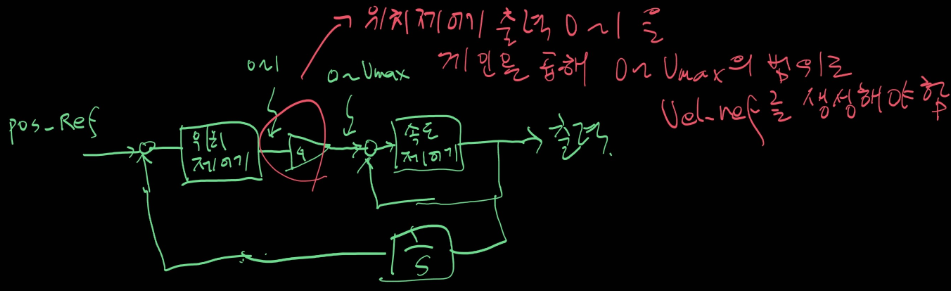 위치제어기 출력 0~1 을
게인을 통해 0~Vmax의 범위로
Vel_ref를 생성해야 함
0~1
0~Vmax
pos_Ref
위치
제어기
속도
제어기
출력
1
S